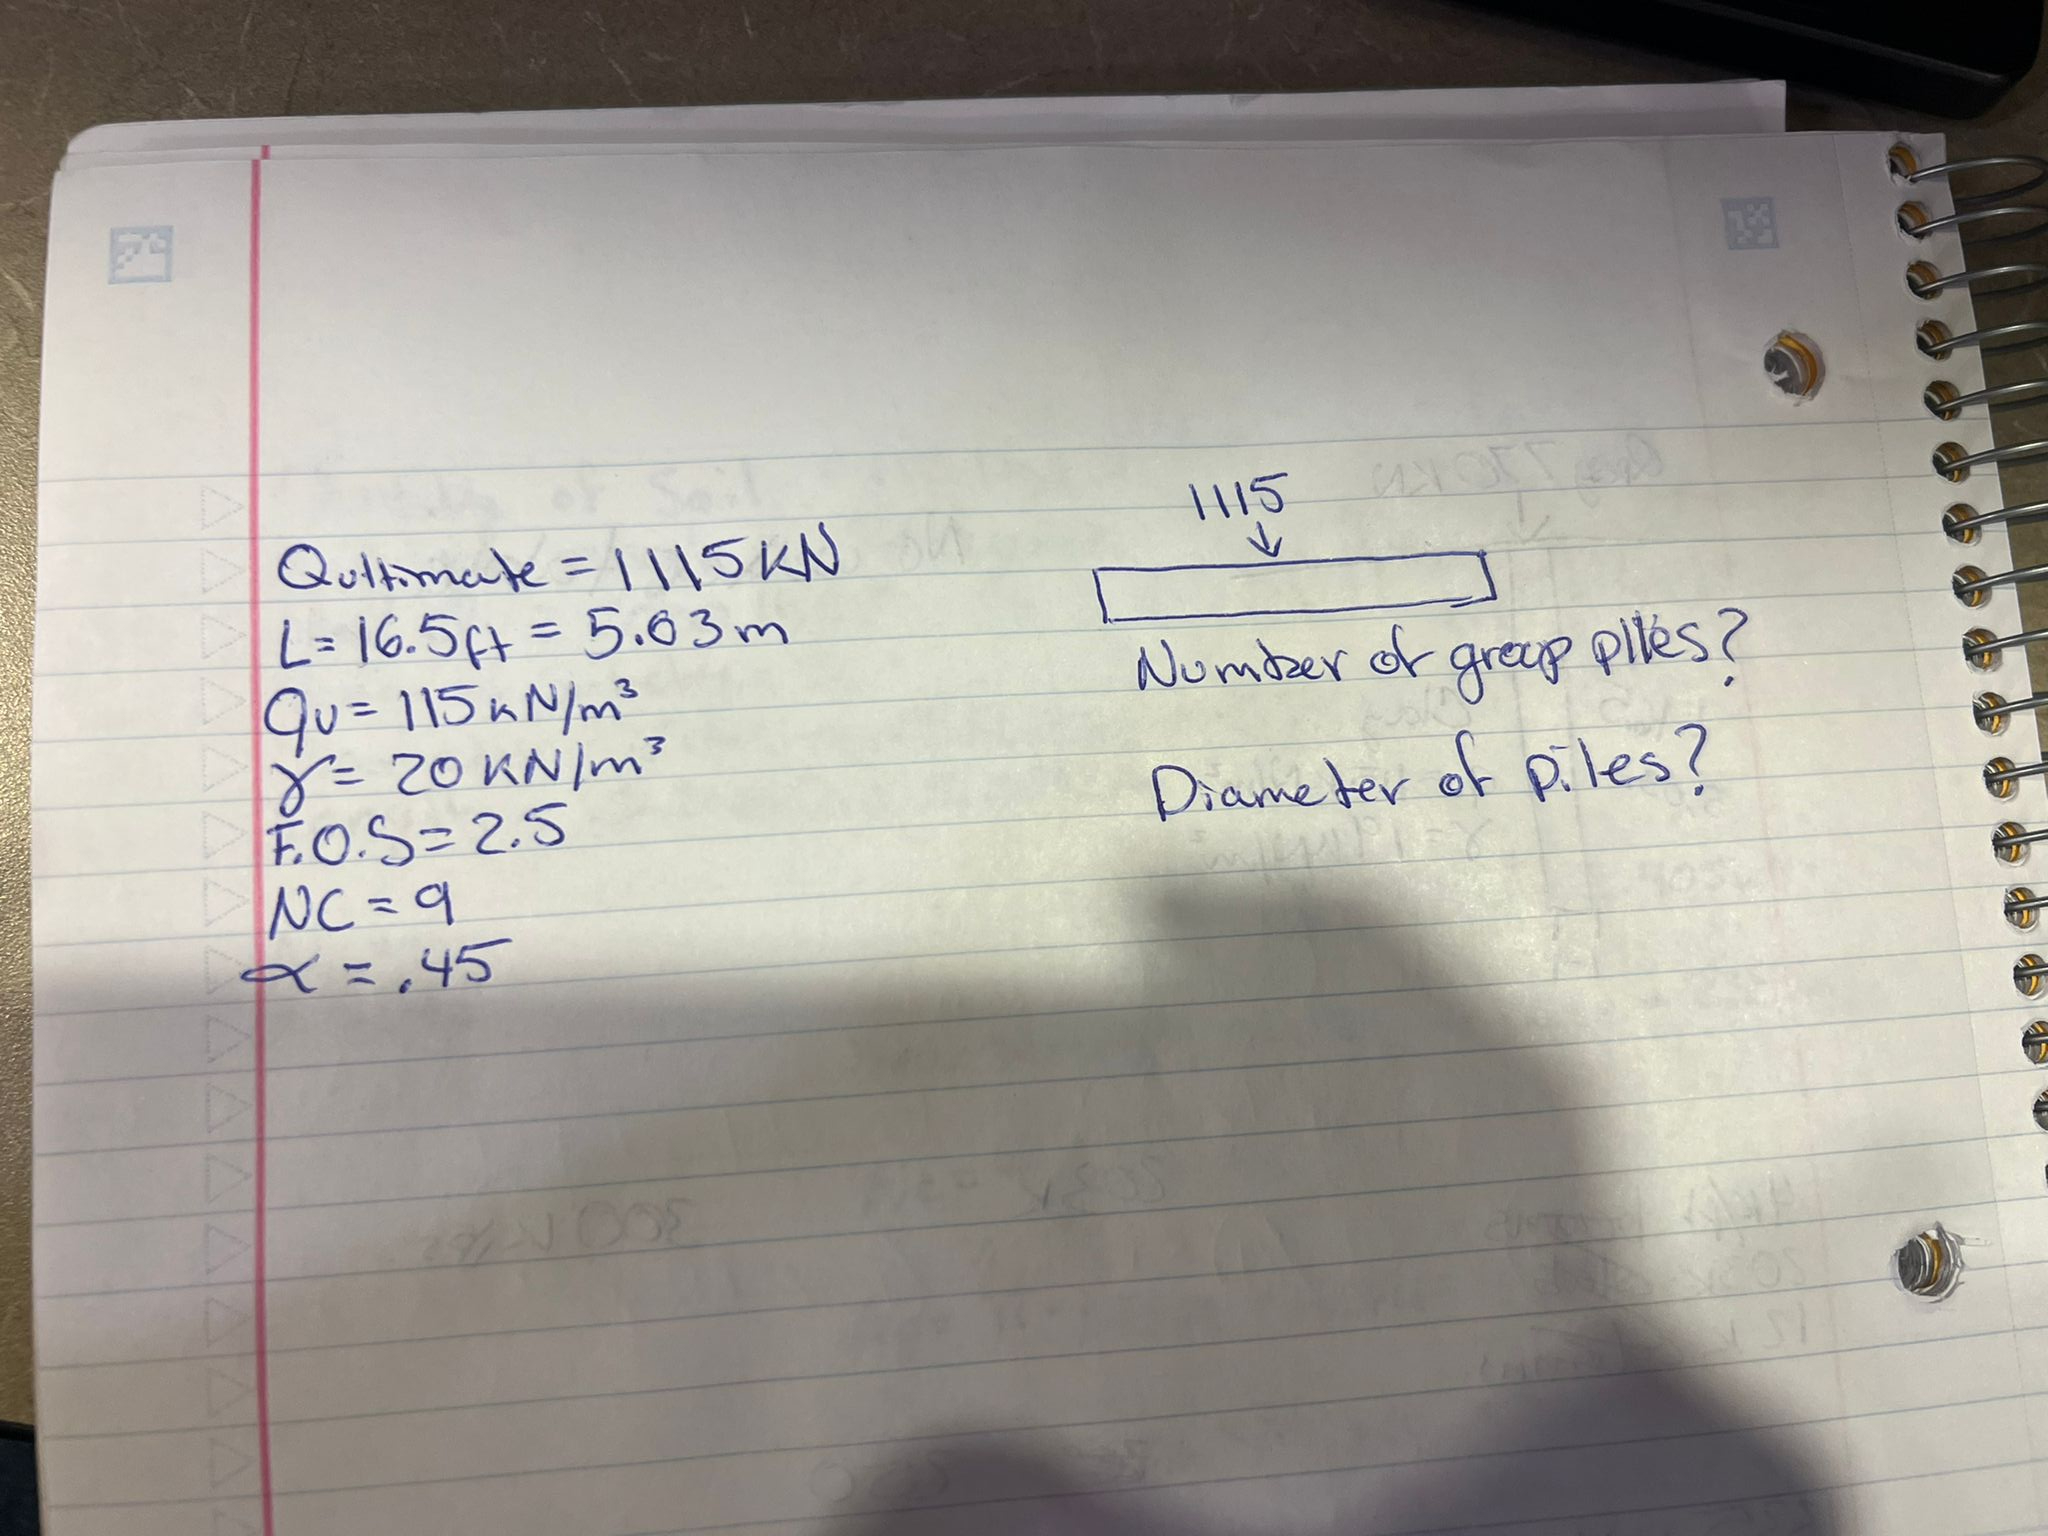 Qultimate = 1115 KN
L = 16.5ft = 5.03m
qu = 115 kN/m³
γ = 20 KN/m³
F.O.S = 2.5
NC = 9
α = .45
1115
Number of group piles?
Diameter of piles?